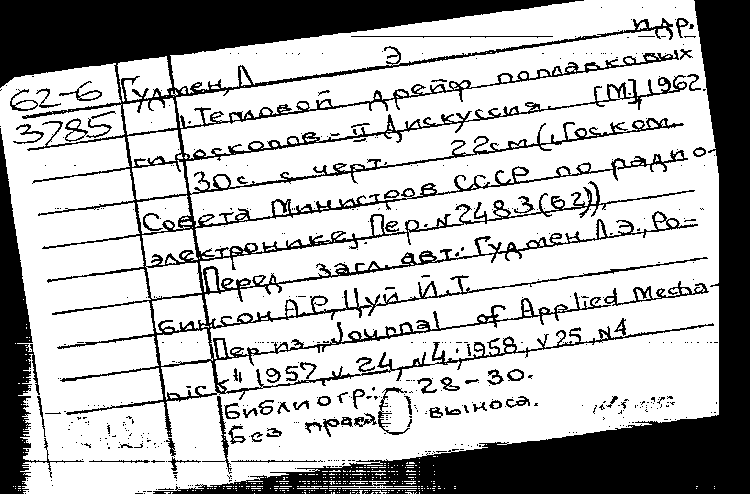 62-6
3785
Гудмен, Л Э и др.
1. Тепловой дрейф поплавковых
гироскопов. - II Дискуссия. [М], 1962.
30с. с черт. 22см (Гос. ком.
Совета Министров СССР по радио-
электронике, Пер. N 2483 (62))
Перед загл. авт.: Гудмен Л.Э., Ро=
бинсон А.Р, Цуй Й.Т.
Пер из „Journal of Applied Mecha-
nics", 1957, v. 24, N 4.; 1958, v 25, N4
Библиогр.: с 28-30.
Без права выноса.